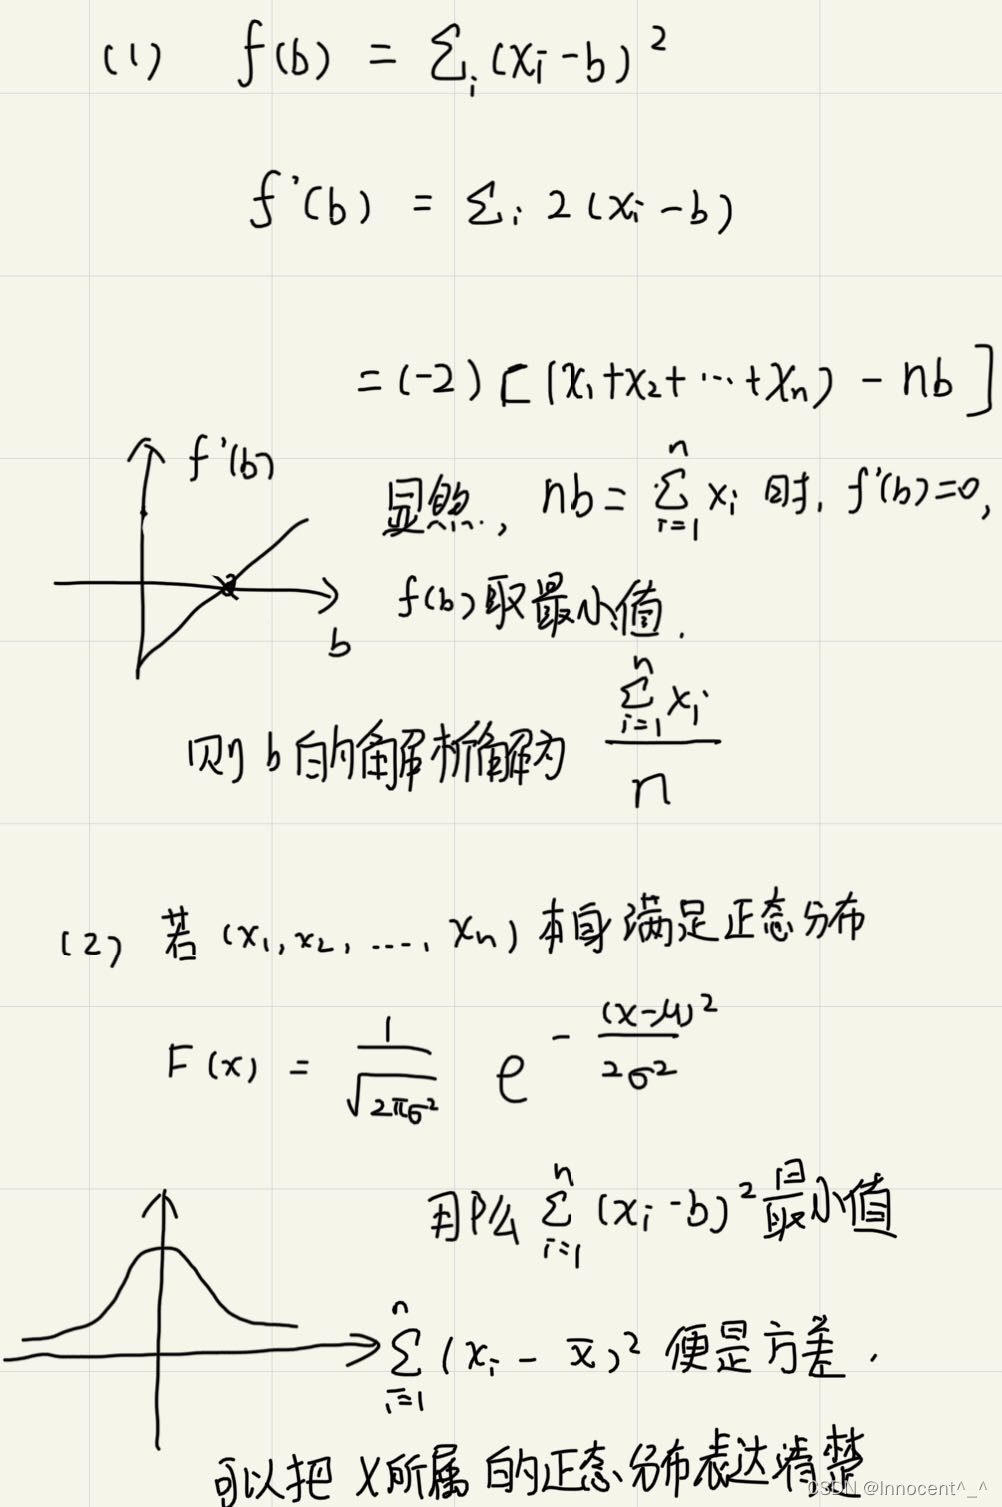 (1) f(b) = Σᵢ(xᵢ-b)²
f'(b) = Σᵢ 2(xᵢ-b)
= (-2)[(x₁+x₂+⋯+xₙ) - nb]
f'(b)
显然, nb = Σⁿᵢ₌₁ xᵢ 时, f'(b)=0,
f(b)取最小值.
b
则 b 的解析解为 Σⁿᵢ₌₁ xᵢ / n
(2) 若 (x₁, x₂, ..., xₙ) 本身满足正态分布
F(x) = 1/√(2πσ²) e^(-(x-μ)²/2σ²)
那么 Σⁿᵢ₌₁ (xᵢ-b)² 最小值
Σⁿᵢ₌₁ (xᵢ - x̄)² 便是方差.
可以把 X所属的正态分布表达清楚
CSDN @Innocent^_^